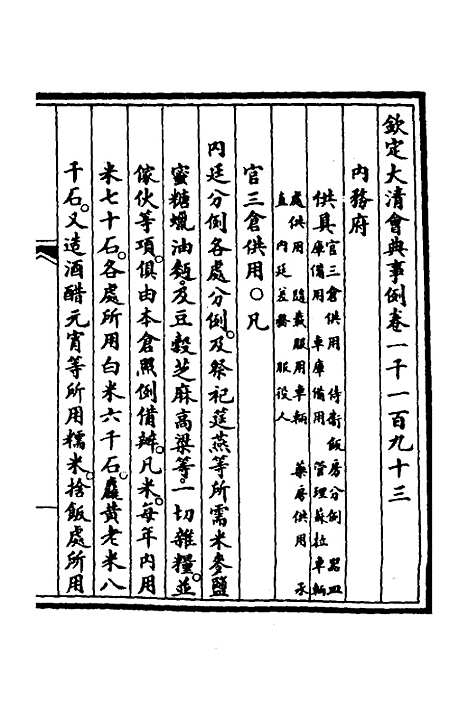 欽定大清會典事例卷一千一百九十三
內務府
供具官三倉供用 侍衛飯房分例 器皿
庫備用 車庫備用 管理蘇拉車輛
處供用 隨裁服用車輛 藥房供用 承
直 內廷差務 服役人
官三倉供用○凡
內廷分例各處分例。及祭祀筵燕等所需米麥鹽
蜜糖蠟油麵。及豆穀芝麻高梁等。一切雜糧。並
傢伙等項。俱由本倉照例備辦。凡米。每年內用
米七十石。各處所用白米六千石。麤黃老米八
千石。又造酒醋元宵等所用糯米。捨飯處所用